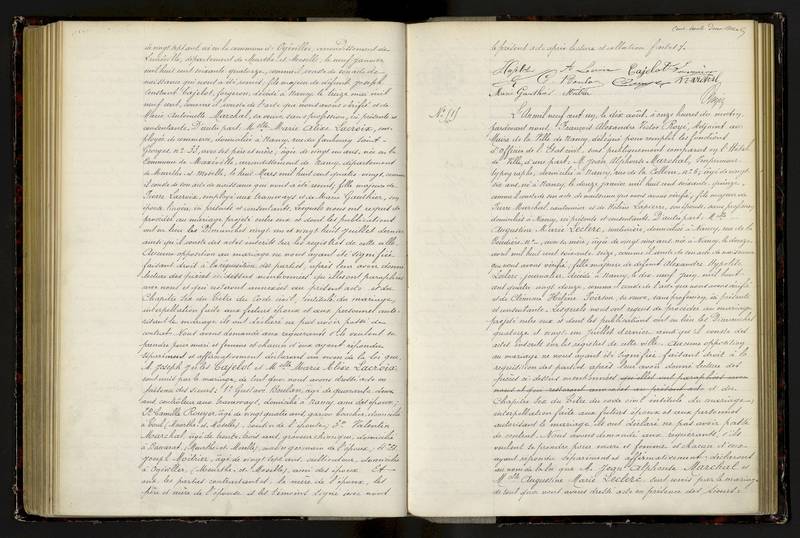 de vingt sept ans, né en la commune d'Ogéviller, arrondissement de
Lunéville, département de Meurthe et Moselle, le neuf janvier
mil huit cent soixante quatorze, comme il conste de son acte de
naissance qui nous a été remis, fils majeur de défunt Joseph
Constant Cajelot, forgeron, décédé à Nancy le treize mai mil
neuf cent, comme il conste de l'acte que nous avons vérifié et de
Marie Antoinette Marchal, sa veuve, sans profession, ici présente et
consentante. D'autre part Mlle Marie Alise Lacroix, em-
ployée de commerce, domiciliée à Nancy, rue du faubourg Saint-
Georges, no 33, avec ses père et mère, âgée de vingt un ans, née en la
Commune de Maxéville, arrondissement de Nancy, département
de Meurthe et Moselle, le huit Mars mil huit cent quatre vingt, comme
il conste de son acte de naissance qui nous a été remis, fille majeure de
Pierre Lacroix, employé aux tramways et de Marie Gauthier, son
épouse, ici présents et consentants. Lesquels nous ont requis de
procéder au mariage projeté entre eux et dont les publications
ont eu lieu les Dimanches vingt un et vingt huit juillet dernier
ainsi qu'il conste des actes inscrits sur les registres de cette ville.
Aucune opposition au mariage ne nous ayant été signifiée
faisant droit à la réquisition des parties, après leur avoir donné
lecture des pièces ci-dessus mentionnées qu'elles ont paraphées
avec nous et qui resteront annexées au présent acte et du
Chapitre six du titre du Code civil, intitulé du mariage,
interpellation faite aux futurs époux et aux personnes auto-
risant le mariage ils ont déclaré ne pas avoir passé de
contrat. Nous avons demandé aux requérants s'ils veulent se
prendre pour mari et femme et chacun d'eux ayant répondu
séparément et affirmativement déclarons au nom de la loi que
M. Joseph Jules Cajelot et Mlle Marie Alise Lacroix
sont unis par le mariage, de tout quoi nous avons dressé acte en
présence des sieurs: 1º Gustave Boulan, âgé de quarante deux
ans, contrôleur aux tramways, domicilié à Nancy, ami des époux;
2º Camille Rouyer, âgé de vingt quatre ans, garçon boucher, domicilié
à Toul (Meurthe et Moselle), cousin de l'épouse; 3º Valentin
Marchal, âgé de trente trois ans, graveur chimique, domicilié
à Baccarat (Meurthe et Moselle), cousin germain de l'époux; 4º
Joseph Mathieu, âgé de vingt sept ans, cultivateur, domicilié
à Ogéviller (Meurthe et Moselle), ami des époux. Et
ont les parties contractantes, la mère de l'époux, les
père et mère de l'épouse et les témoins signé avec nous
le présent acte après lecture et collation faites.
Cajelot
Marie Gauthier
Marchal
L'An mil neuf cent un, le dix août, à onze heures du matin,
pardevant nous, François Alexandre Victor Croyé, Adjoint au
Maire de la Ville de Nancy, délégué pour remplir les fonctions
d'Officier de l'Etat civil, sont publiquement comparus en l'Hôtel
de Ville, d'une part, M. Jean Alphonse Marchal, Imprimeur
typographe, domicilié à Nancy, rue de la Colline, no 6, âgé de vingt
six ans, né à Nancy, le douze janvier mil huit cent soixante quinze,
comme il conste de son acte de naissance que nous avons vérifié, fils majeur de
Pierre Marchal, cantonnier et de Hélène Lapierre, son épouse, sans profession,
domiciliés à Nancy, ici présents et consentants. D'autre part, Mlle
Augustine Marie Leclerc, couturière, domiciliée à Nancy, rue de la
avec sa mère, âgée de vingt cinq ans, née à Nancy, le douze
août mil huit cent soixante seize, comme il conste de son acte de naissance
que nous avons vérifié, fille majeure de défunt Alexandre Hypolite
Leclerc, journalier, décédé à Nancy, le dix neuf Juin mil huit
cent quatre vingt douze, comme il conste de l'acte que nous avons vérifié
et de Clémence Hélène Poirson, sa veuve, sans profession, ici présente
et consentante. Lesquels nous ont requis de procéder au mariage
projeté entre eux et dont les publications ont eu lieu les Dimanches
quatorze et vingt un Juillet dernier ainsi qu'il conste des
actes inscrits sur les registres de cette ville. Aucune opposition
au mariage ne nous ayant été signifiée faisant droit à la
réquisition des parties après leur avoir donné lecture des
pièces ci-dessus mentionnées qu'elles ont paraphées avec
nous et qui resteront annexées au présent acte et du
Chapitre six du titre du code civil intitulé du mariage,
interpellation faite aux futurs époux et aux personnes
autorisant le mariage ils ont déclaré ne pas avoir passé
de contrat. Nous avons demandé aux requérants s'ils
veulent se prendre pour mari et femme et chacun d'eux
ayant répondu séparément et affirmativement, déclarons
au nom de la loi que M. Jean Alphonse Marchal et
Mlle Augustine Marie Leclerc sont unis par le mariage
de tout quoi nous avons dressé acte en présence des sieurs: